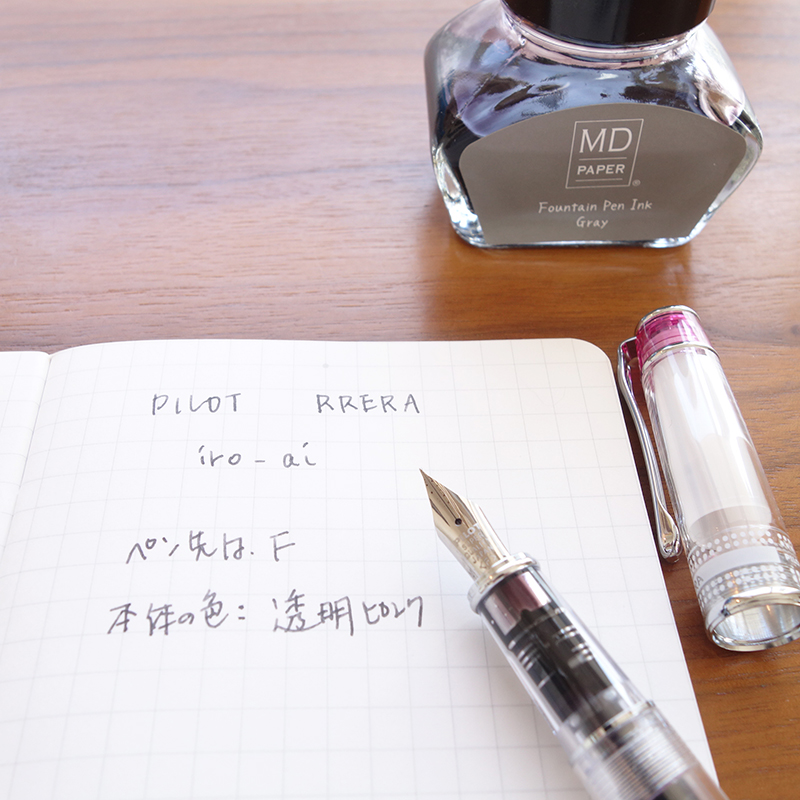 MD
PAPER
®
Fountain Pen Ink
Gray
PILOT RRERA
iro-ai
ペン先は、F
本体の色: 透明ピンク